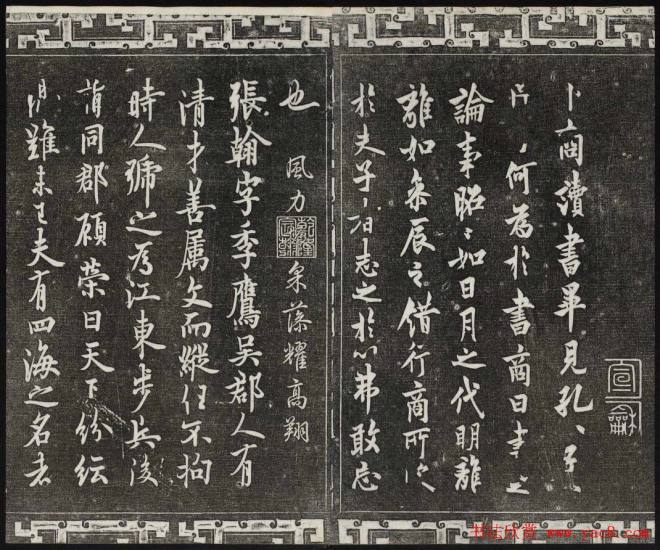 卜商讀書畢見孔子子
何為於書商曰書之
論事昭昭如日月之代明離
離如參辰之錯行商所
於夫子志之於心弗敢忘
也
風力
乾隆
宸翰
采藻耀高翔
張翰字季鷹吳郡人有
清才善属文而縱任不拘
時人號之為江東步兵後
謂同郡顧榮曰天下紛紜
難未已夫有四海之名者
宣龢
书法欣赏 www.yac8.com